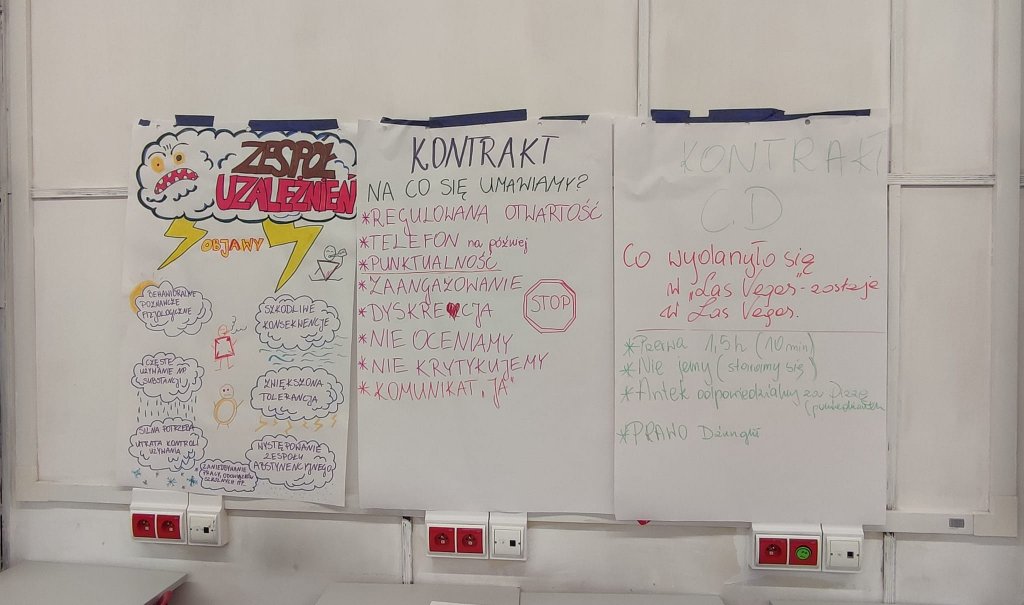 ZESPÓŁ
UZALEŻNIEŃ
OBJAWY
BEHAWIORALNE
POZNAWCZE
FIZJOLOGICZNE
SZKODLIWE
KONSEKWENCJE
CZĘSTE
UŻYWANIE NP
SUBSTANCJI
ZWIĘKSZONA
TOLERANCJA
SILNA POTRZEBA
UTRATA KONTROLI
UŻYWANIA
WYSTĘPOWANIE
ZESPOŁU
ABSTYNENCYJNEGO
ZANIEDBYWANIE
PRACY, OBOWIĄZKÓW
SZKOLNYCH ITP.
KONTRAKT
NA CO SIĘ UMAWIAMY?
*REGULOWANA OTWARTOŚĆ
*TELEFON na później
*PUNKTUALNOŚĆ
*ZAANGAŻOWANIE
*DYSKRECJA
*NIE OCENIAMY
*NIE KRYTYKUJEMY
*KOMUNIKAT „JA"
STOP
KONTRAKT
CD
Co wydarzyło się
w „Las Vegas"- zostaje
w Las Vegas.
*Przerwa 1,5h (10min)
*Nie jemy (staramy się)
*Antek odpowiedzialny za Pizzę
*PRAWO Dżungli